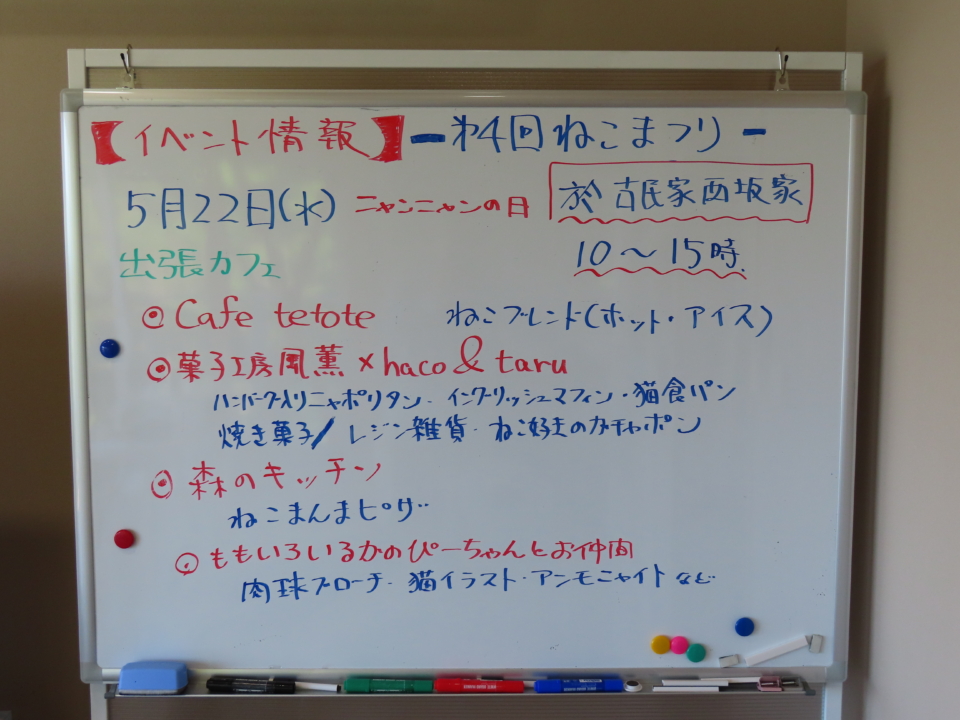 【イベント情報】ー第4回ねこまつりー
5月22日(水) ニャンニャンの日
於 古民家西坂家
10～15時
出張カフェ
◎Cafe tetote ねこブレンド(ホット・アイス)
◎菓子工房風薫×haco&taru
ハンバーグ入りニャポリタン・イングリッシュマフィン・猫食パン
焼き菓子/レジン雑貨・ねこ好きのガチャポン
◎森のキッチン
ねこまんまピザ
◎ももいろいるかのぴーちゃんとお仲間
肉球ブローチ・猫イラスト・アンモニャイトなど